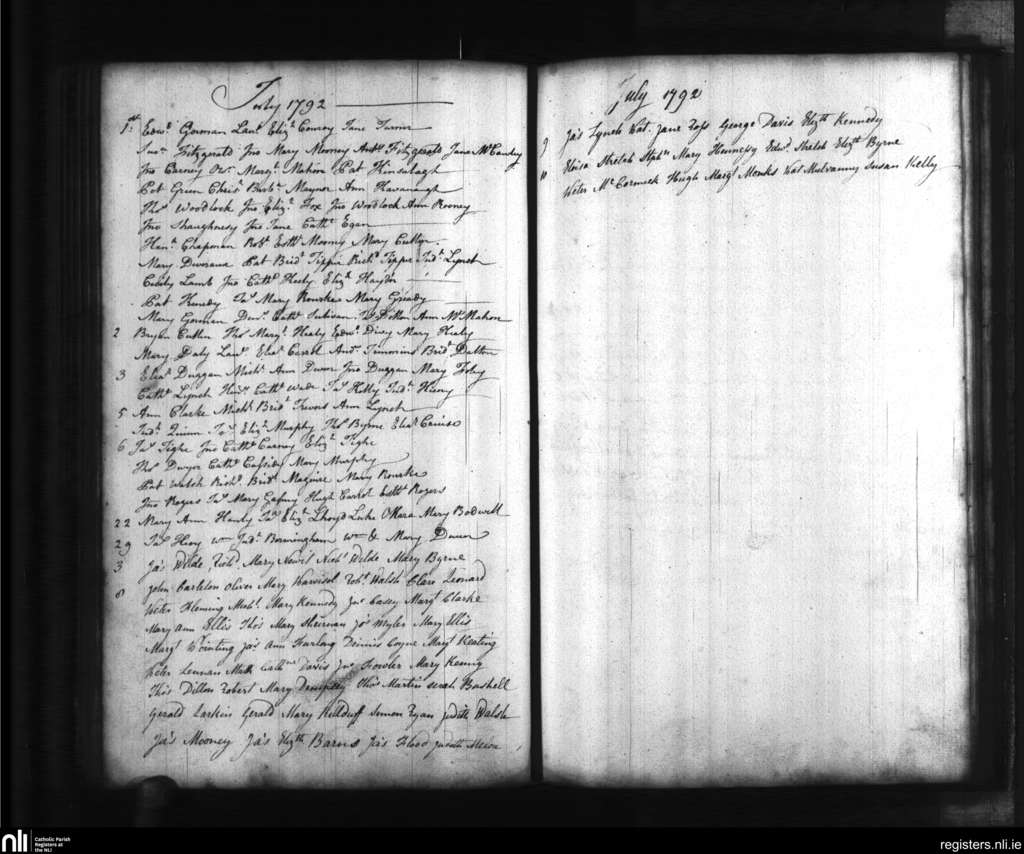 July 1792
1st Edwd. Gorman Lawe. Elizh. Conroy Jane Turner
Fitzgerald Jno Mary Mooney Anthy. Fitzgerald Jane McCawley
Jno Carney Margt. Mahon Pat Kinselagh
Pat Green Chrisr. Barba. Maynor Ann Kavanagh
Thos. Woodlock Jno Elizh. Fox Jno Woodlock Ann Rooney
Jno Shaughnesy Jno Jane Cathe. Egan
Chapman Robt. Esthr. Mooney Mary Cullen
Mary Pat Bridt. Tippin Richd. Tippin Judh. Lynch
Cicely Lamb Jno Cathe. Healy Elizh. Haydon
Pat Kenedy Jas. Mary Rourke Mary Gready
Mary Gorman Cathe. Sulivan Ann McMahon
2 Bryan Cullen Thos Margt. Healy Edwd. Mary Healy
Mary Daly Lawe. Elear. Andw. Timmins Bridt. Dalton
3 Elear. Duggan Michl. Ann Dunn Jno Duggan Mary Foley
Cathe. Lynch Cathe. Wade Jas. Kelly Judh.
5 Ann Clarke Michl. Bridt. Trevors Ann Lynch
Judh. Quinn Jas. Elizh. Murphy Thos Byrne Elear.
6 Jas. Tighe Jno Cathe. Carney Elizh. Tighe
Thos Dwyer Cathe. Cassidy Mary Murphy
Pat Welsh Richd. Bridt. Maguire Mary Rourke
Jno Rogers Jas. Mary Gafney Hugh Esthr. Rogers
22 Mary Ann Hanly Jas. Elizh. Lhoyd Luke OHara Mary Bodwell
29 Jas. Wm Judh. Bermingham Wm & Mary Dunn
3 Ja's Wilde Richd. Mary Nichs. Wilde Mary Byrne
John Carleton Oliver Mary Harrisol Robt. Walsh Clare Leonard
8 Peter Fleming Michl. Mary Kennedy Jno Casey Margt. Clarke
Mary Ann Ellis Tho's Mary Sheirman Jos Myler Mary Ellis
Margt. Pointing Ja's Ann Harlang Dennis Coyne Margt. Keating
Peter Lennan Mark Cathne Davis Jno Fowler Mary Kernig
Tho's Dillon Robert Mary Dempsey Tho's Martin Serah Bushell
Gerald Larkin Gerald Mary Killduff Simon Ryan Judith Walsh
Ja's Mooney Ja's Elizth Barns Ja's Flood Judith
July 1792
9 Ja's Lynch Pat. Jane Ross George Davis Elizth Kennedy
Eloisa Strelch Stphn Mary Hennessy Edwd. Strelch Elizth Byrne
10 Peter McCormick Hugh Margt. Monks Pat Mulvanny Susan Kelly
nli
Catholic Parish
Registers at
the NLI
registers.nli.ie